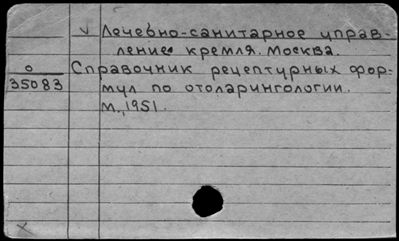 √ Лечебно-санитарное управ-
ление кремля. Москва.
о Справочник рецептурных фор-
35083 мул по отоларингологии.
М., 1951.
х